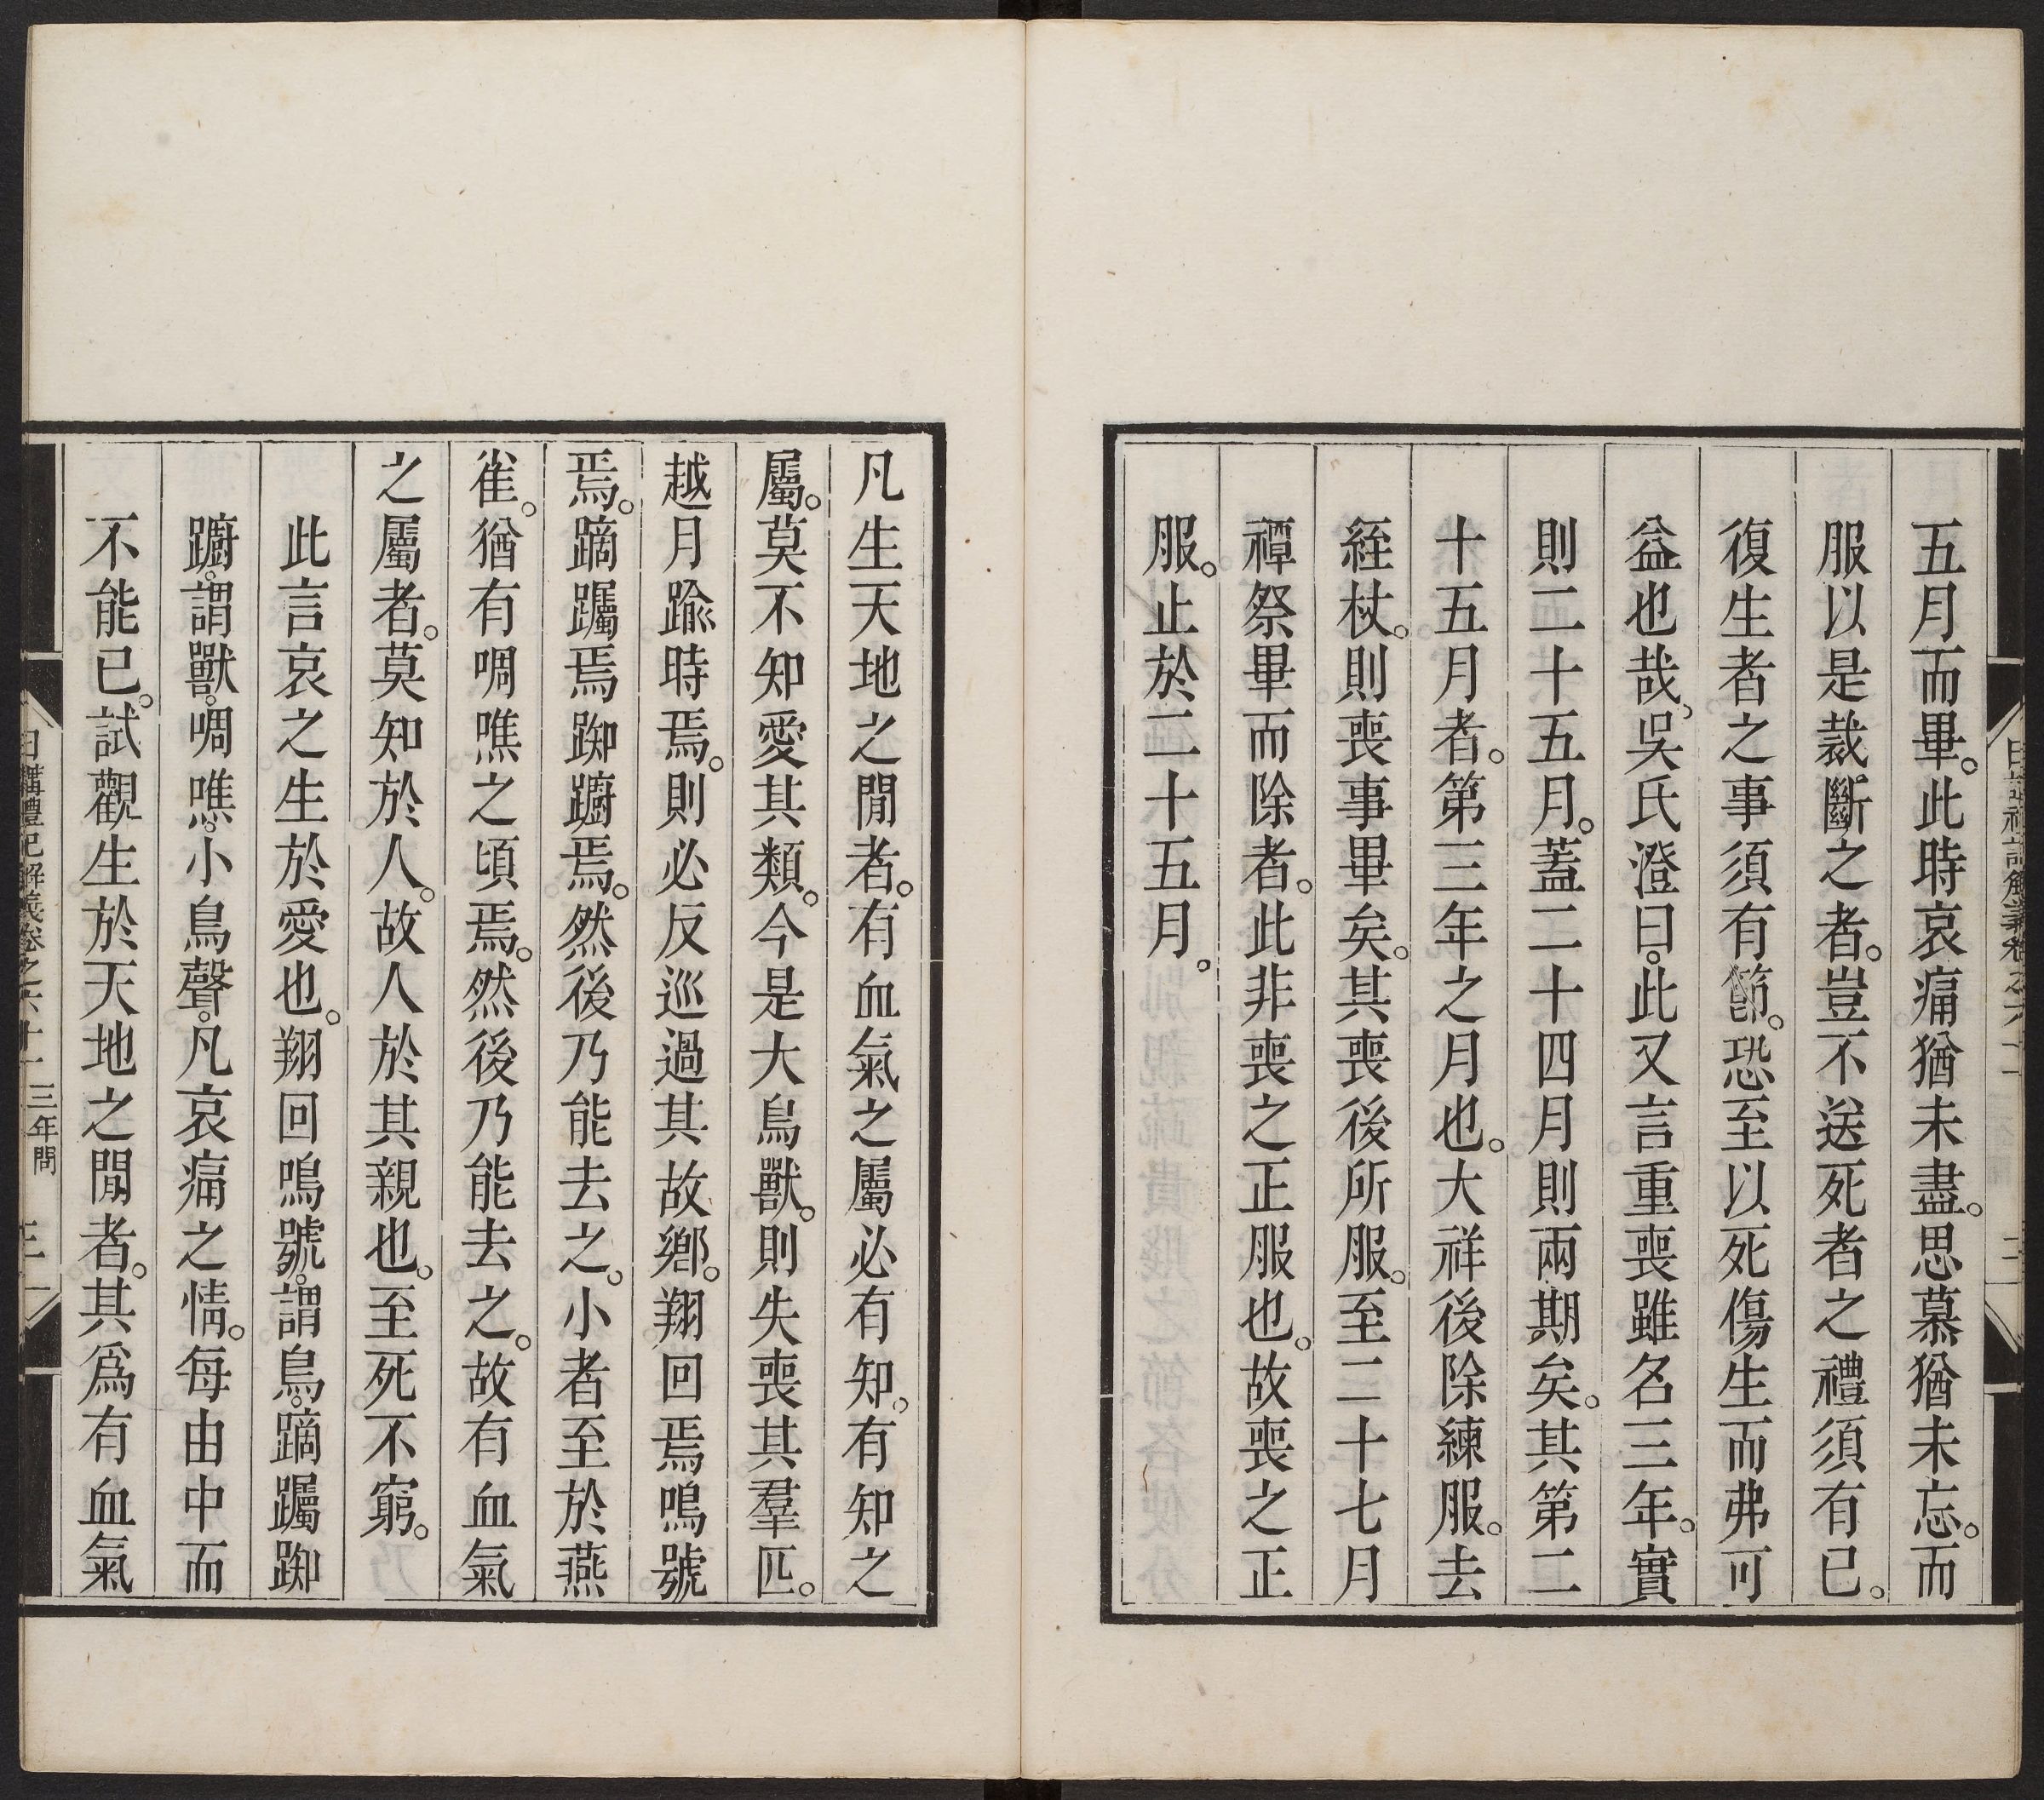 五月而畢。此時哀痛猶未盡。思慕猶未忘。而
服以是裁斷之者。豈不送死者之禮須有已。
復生者之事須有節。恐至以死傷生而弗可
益也哉。吳氏澄曰。此又言重喪雖名三年。實
則二十五月。蓋二十四月則兩期矣。其第二
十五月者。第三年之月也。大祥後除練服。去
絰杖。則喪事畢矣。其喪後所服。至二十七月
禫祭畢而除者。此非喪之正服也。故喪之正
服。止於二十五月。
凡生天地之閒者。有血氣之屬必有知。有知之
屬。莫不知愛其類。今是大鳥獸。則失喪其羣匹。
越月踰時焉。則必反巡過其故鄉。翔回焉鳴號
焉。蹢躅焉踟躕焉。然後乃能去之。小者至於燕
雀。猶有啁噍之頃焉。然後乃能去之。故有血氣
之屬者。莫知於人。故人於其親也。至死不窮。
此言哀之生於愛也。翔回鳴號。謂鳥。蹢躅踟
躕。謂獸。啁噍。小鳥聲。凡哀痛之情。每由中而
不能已。試觀生於天地之閒者。其爲有血氣
日講禮記解義卷之六十一 三年問 三